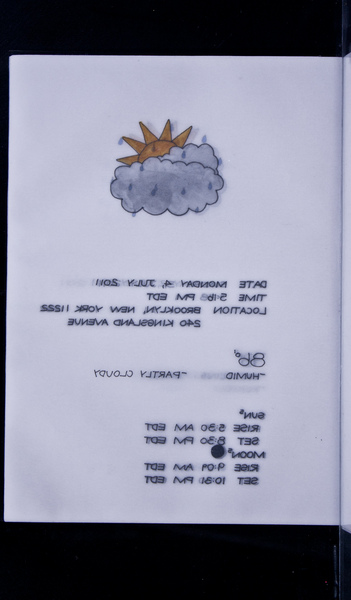 DATE MONDAY 4, JULY 2011
TIME 5:16 PM EDT
LOCATION BROOKLYN, NEW YORK 11222
240 KINGSLAND AVENUE
86°
~HUMID ~PARTLY CLOUDY
SUN~
RISE 5:30 AM EDT
SET 8:30 PM EDT
MOON~
RISE 9:09 AM EDT
SET 10:31 PM EDT